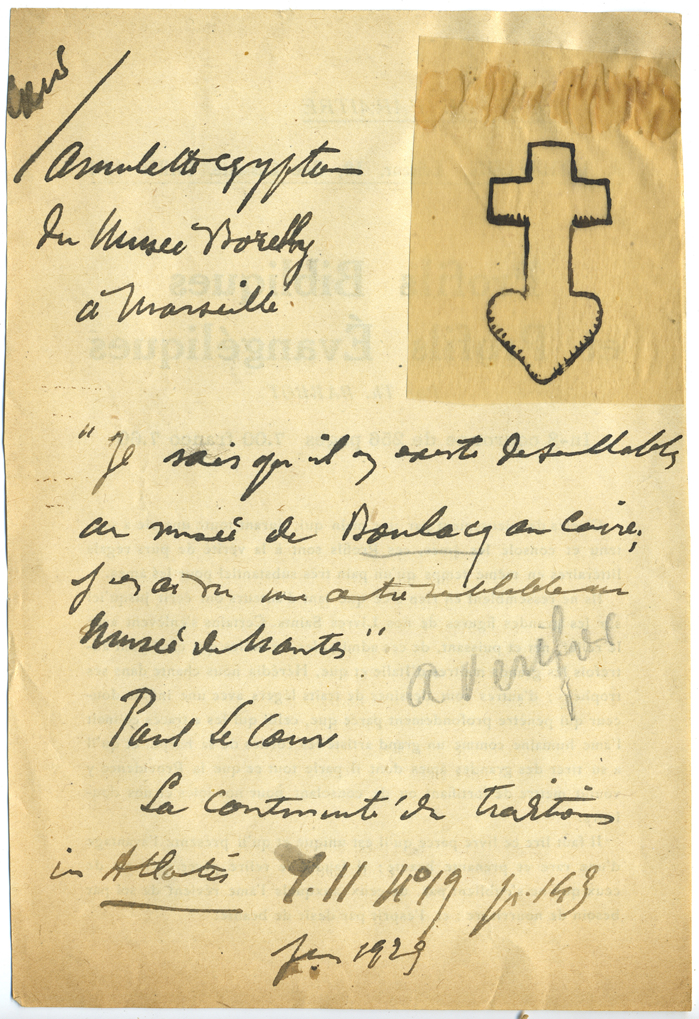 Amulette egyptien
du Musée Borelly
à Marseille
Bibliques
Évangéliques
"Je sais qu'il en existe de semblables
au musée de Boulacq au Caire,
j'en ai vu une autre semblable au
Musée de Nantes"
a verifier
Paul Le Cour
La continuité des traditions
in Atlantis T. II Nº 19 p. 143
1929